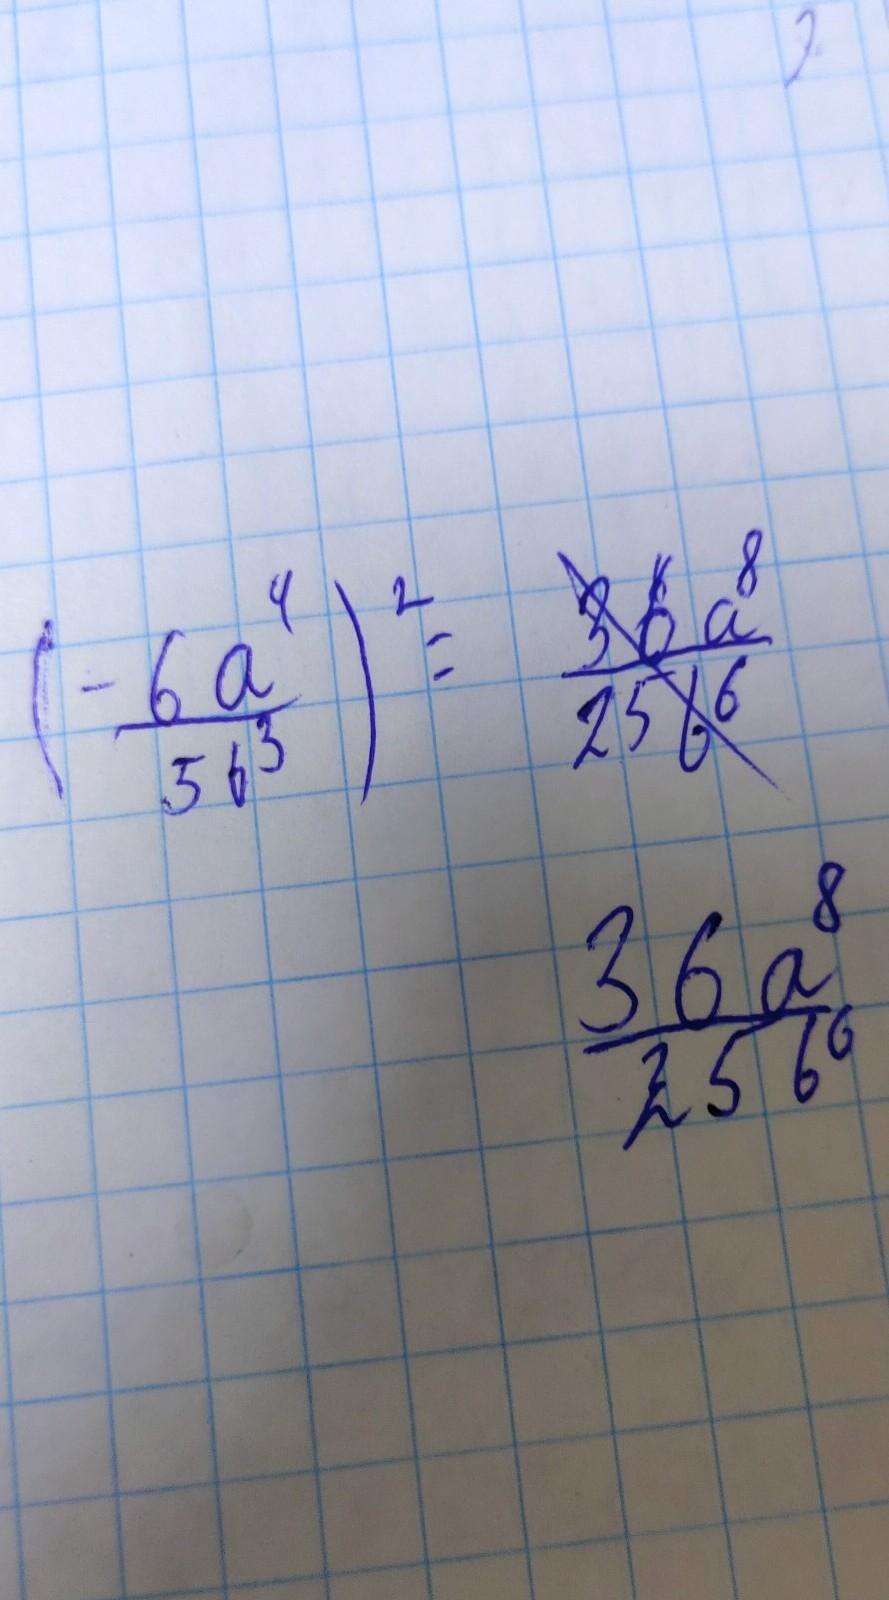 (-6a⁴/5b³)² = 36a⁸/25b⁶
36a⁸/25b⁶